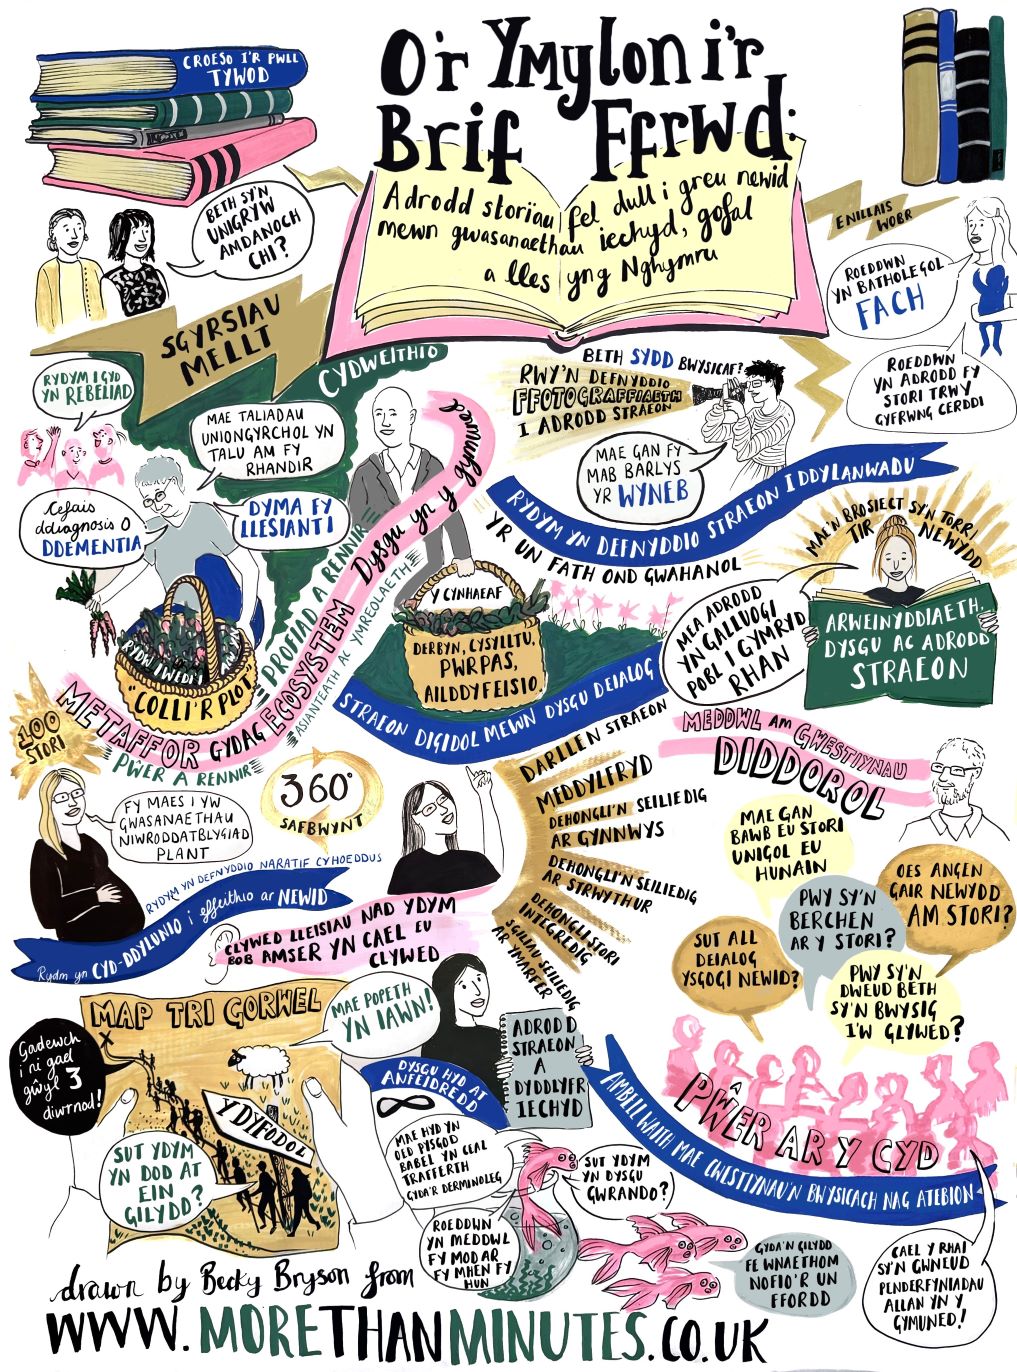 CROESO I'R PWLL
TYWOD
O'r Ymylon i'r
Brif Ffrwd:
Adrodd storïau fel dull i greu newid
mewn gwasanaethau iechyd, gofal
a lles yng Nghymru
BETH SY'N
UNIGRYW
AMDANOCH
CHI?
ENILLAIS
WOBR
ROEDDWN
YN BATHOLEGOL
FACH
ROEDDWN
YN ADRODD FY
STORI TRWY
GYFRWNG CERDDI
SGYRSIAU
MELLT
CYDWEITHIO
RYDYM I GYD
YN REBELIAD
MAE TALIADAU
UNIONGYRCHOL YN
TALU AM FY
RHANDIR
Cefais
ddiagnosis O
DDEMENTIA
DYMA FY
LLESIANT I
BETH SYDD BWYSICAF?
RWY'N DEFNYDDIO
FFOTOGRAFFIAETH
I ADRODD STRAEON
MAE GAN FY
MAB BARLYS
YR WYNEB
RYDYM YN DEFNYDDIO STRAEON I DDYLANWADU
YR UN FATH OND GWAHANOL
MAE'N BROSIECT SY'N TORRI
TIR NEWYDD
MEA ADRODD
YN GALLUOGI
POBL I GYMRYD
RHAN
ARWEINYDDIAETH,
DYSGU AC ADRODD
STRAEON
Dysgu yn y gymuned
PROFIAD A RENNIR
ASIANTEATH AC YMREOLAETH
METAFFOR GYDAG ECOSYSTEM
PŴER A RENNIR
RYDW I WEDI
"COLLI'R PLOT"
Y CYNHAEAF
DERBYN, CYSYLLTU,
PWRPAS,
AILDDYFEISIO
STRAEON DIGIDOL MEWN DYSGU DEIALOG
100
STORI
FY MAES I YW
GWASANAETHAU
NIWRODDATBLYGIAD
PLANT
360°
SAFBWYNT
RYDYM YN DEFNYDDIO NARATIF CYHOEDDUS
Rydm yn CYD-DDYLUNIO i effeithio ar NEWID
CLYWED LLEISIAU NAD YDYM
BOB AMSER YN CAEL EU
CLYWED
DARLLEN STRAEON
MEDDYLFRYD
DEHONGLI'N SEILIEDIG
AR GYNNWYS
DEHONGLI'N SEILIEDIG
AR STRWYTHUR
DEHONGLI STORI
INTEGREDIG
SGILIAU SEILIEDIG
AR YMARFER
MEDDWL AM GWESTIYNAU
DIDDOROL
MAE GAN
BAWB EU STORI
UNIGOL EU
HUNAIN
OES ANGEN
GAIR NEWYDD
AM STORI?
PWY SY'N
BERCHEN
AR Y STORI?
SUT ALL
DEIALOG
YSGOGI NEWID?
PWY SY'N
DWEUD BETH
SY'N BWYSIG
I'W GLYWED?
MAP TRI GORWEL
MAE POPETH
YN IAWN!
Gadewch
i ni gael
gŵyl 3
diwrnod!
Y DYFODOL
SUT YDYM
YN DOD AT
EIN
GILYDD?
ADRODD
STRAEON
A
DYDDLYFR
IECHYD
DYSGU HYD AT
ANFEIDREDD
MAE HYD YN
OED PYSGOD
BABEL YN CEAL
TRAFFERTH
GYDA'R DERMINOLEG
SUT YDYM
YN DYSGU
GWRANDO?
ROEDDWN
YN MEDDWL
FY MOD AR
FY MHEN FY
HUN
GYDA'N GILYDD
FE WNAETHOM
NOFIO'R UN
FFORDD
PŴER AR Y CYD
AMBELL WAITH MAE CWESTIYNAU'N BWYSICACH NAG ATEBION
CAEL Y RHAI
SY'N GWNEUD
PENDERFYNIADAU
ALLAN YN Y
GYMUNED!
drawn by Becky Bryson from
WWW.MORETHANMINUTES.CO.UK